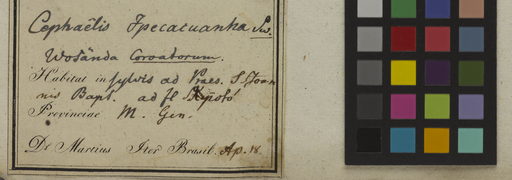 Cephaëlis Ipecacuanha Sw.
Wosända Coroatorum.
Habitat in sylvis ad Praes. S. Joan
nis Bapt. ad fl. Xipotó
Provinciae M. Gen.
De Martius Iter Brasil. Ap. 18.